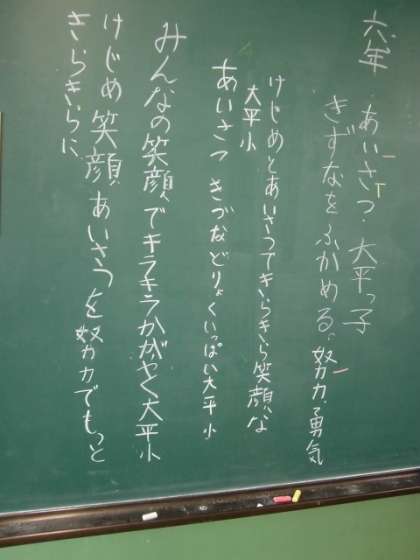 六年 あいさつ・大平っ子
きずなをふかめる、努力・勇気
けじめとあいさつできらきら笑顔な
大平小
あいさつ きづなどりょくいっぱい大平小
みんなの笑顔でキラキラかがやく大平小
けじめ笑顔あいさつを努力でもっと
きらきらに